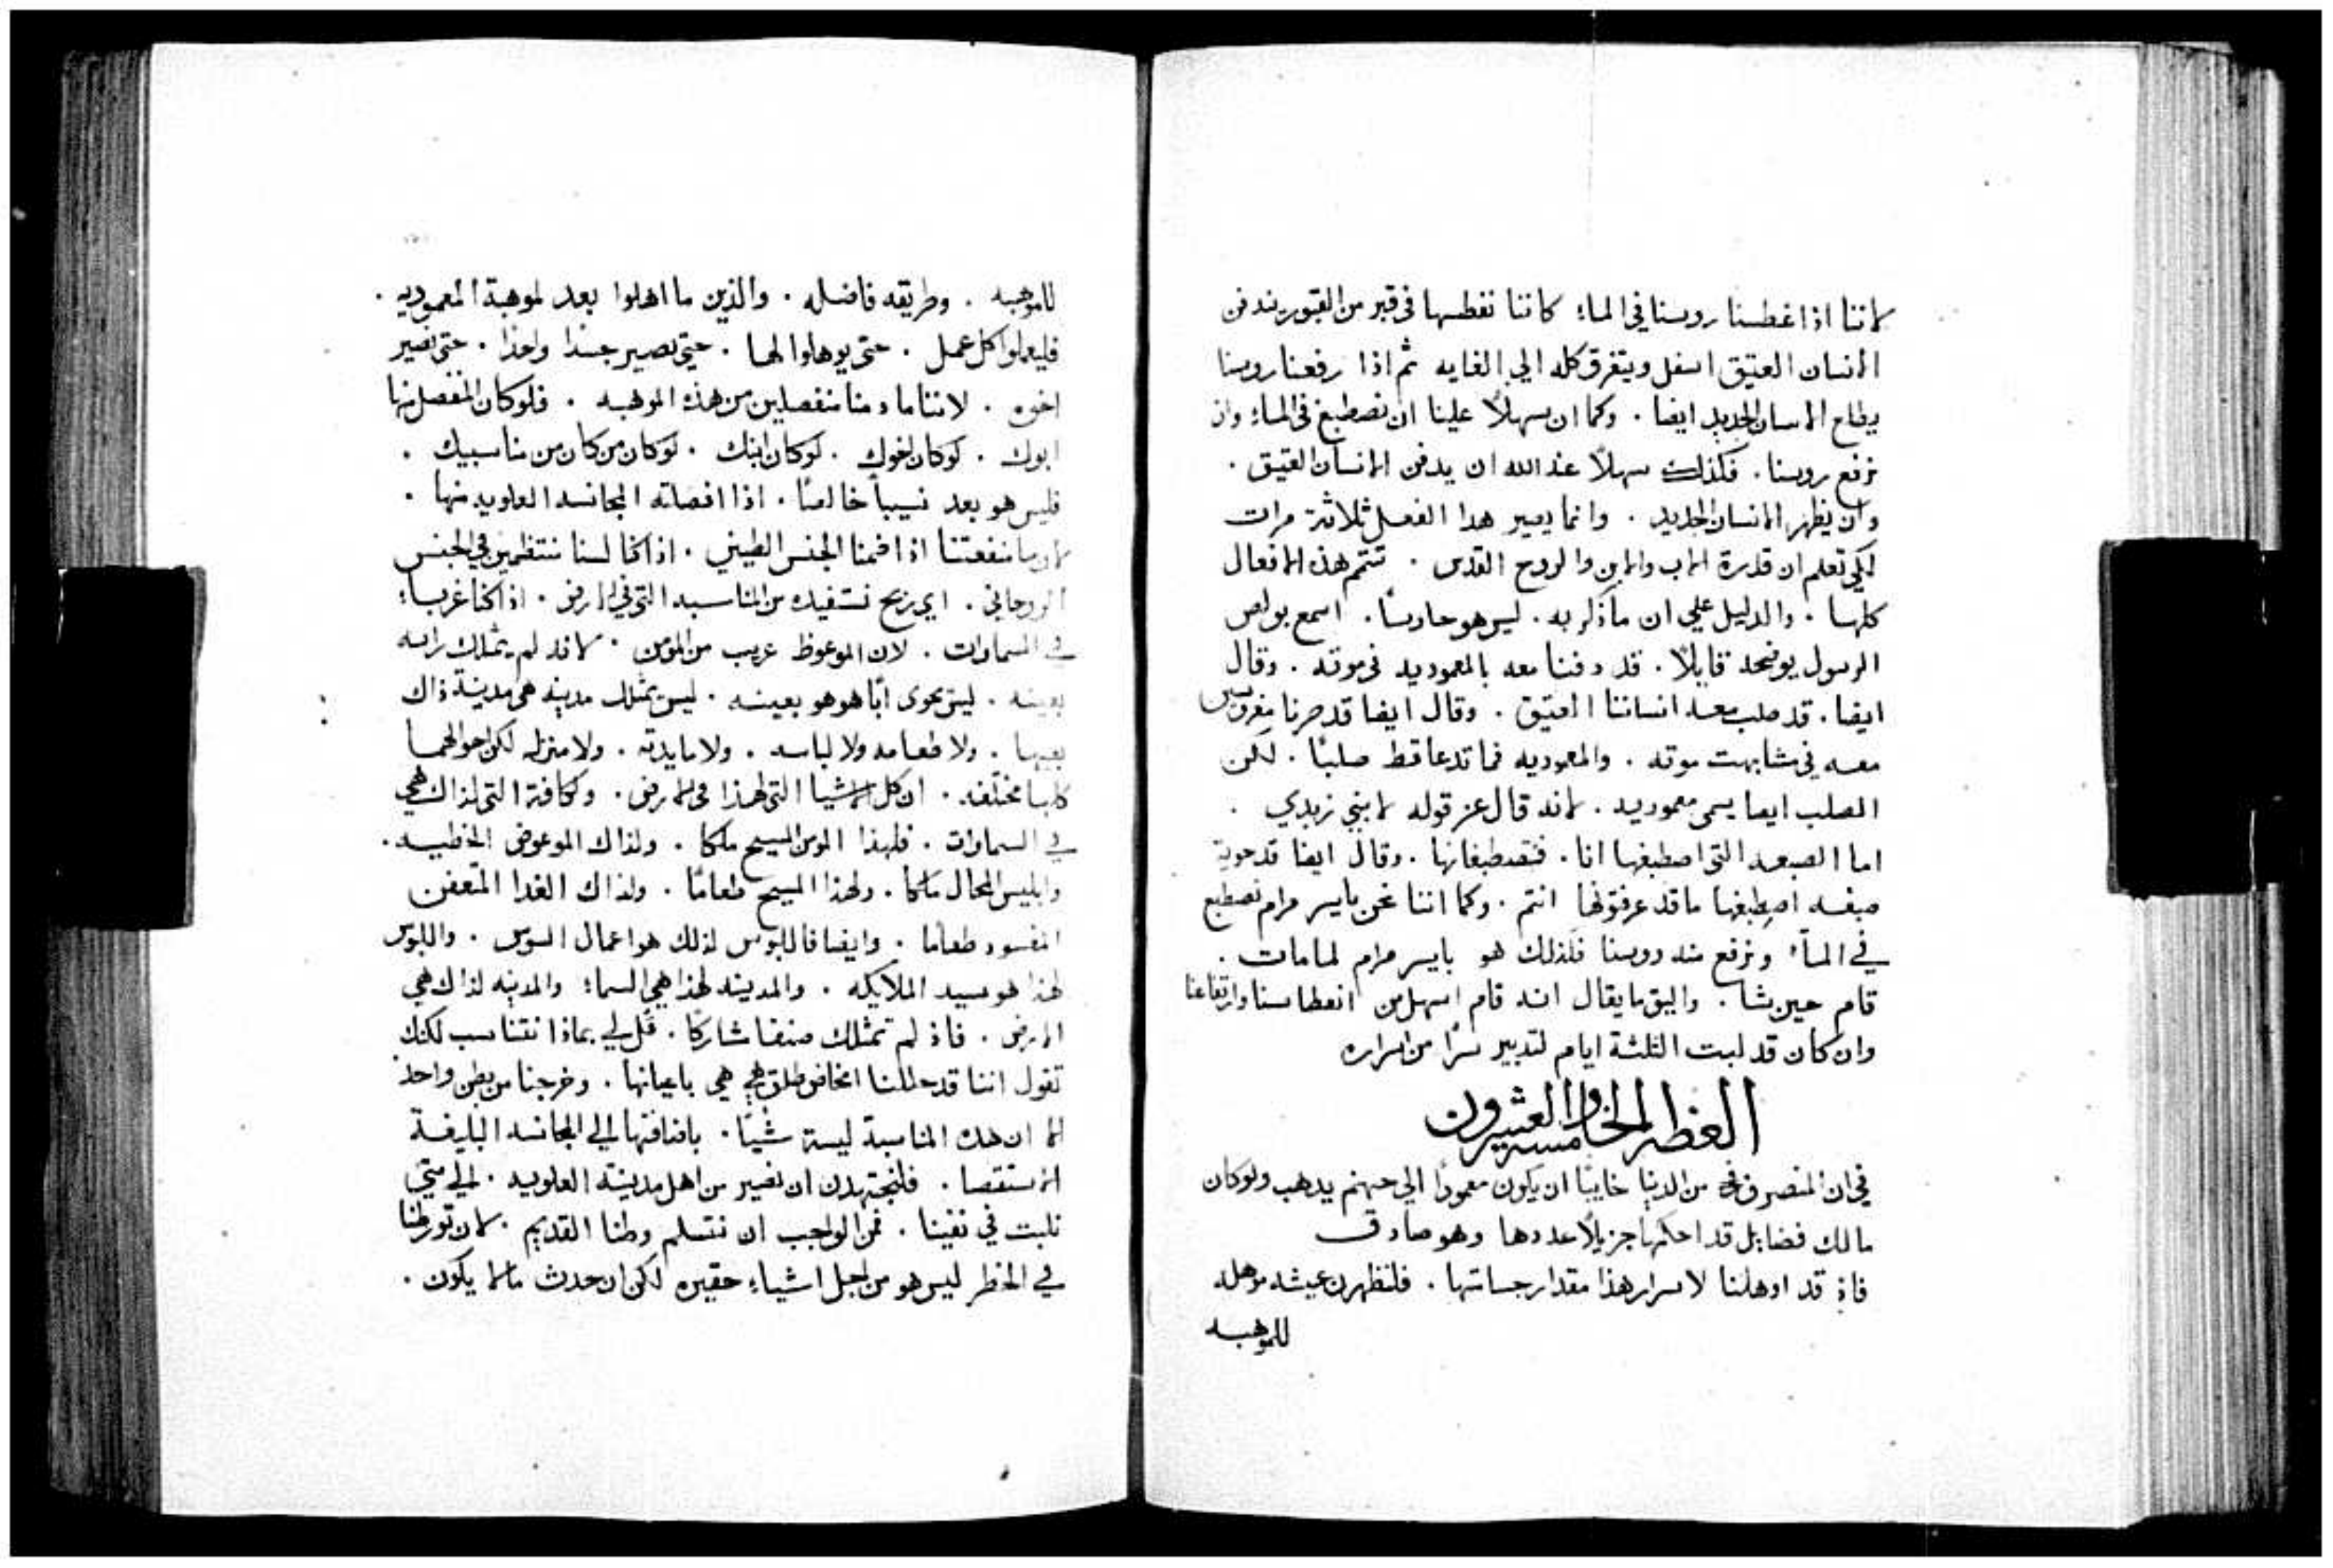 لاننا اذا غطسنا روسنا في الماء كاننا نغطسها في قبر من القبور يندفن
الانسان العتيق اسفل ويتغرق كله الي الغايه ثم اذا رفعنا روسنا
يطلع الانسان الجديد ايضا . وكما ان سهلاً علينا ان نصطبغ في الماء وان
نرفع روسنا . فكذلك سهلاً عند الله ان يدفن الانسان العتيق .
وان يظهر الانسان الجديد . وانما يصير هدا الفعل ثلاثة مرات
لكي تعلم ان قدرة الاب والابن والروح القدس . تتمم هذه الافعال
كلها . والدليل علي ان ما ذكر به . ليس هو حادسًا . اسمع بولص
الرسول يوضحه قايلاً . قد دفنا معه بالمعموديه في موته . وقال
ايضا . قد صلب معه انساننا العتيق . وقال ايضا قد صرنا مغروسين
معه في مشابهت موته . والمعموديه فما تدعا قط صلبًا . لكن
الصلب ايضا يسمى معموديه . لانه قال عز قوله لابني زبدي .
اما الصبغه التي اصطبغها انا . فتصطبغانها . وقال ايضا قد حوية
صبغه اصطبغها ما قد عرفتوها انتم . وكما اننا نحن بايسر مرام نصطبغ
في الماء ونرفع منه روسنا فلذلك هو بايسر مرام لما مات .
قام حين شا . واليق ما يقال انه قام اسهل من انغطاسنا وارتفاعنا
وان كان قد لبت الثلثة ايام لتدبير سرًا من اسراره
العظه الخامسه والعشرون
في ان المنصرف من الدنيا خايبًا ان يكون معمودًا الي جهنم يدهب ولو كان
مالك فضايل قد احكمها جزيلاً عددها وهو صادق
فاذ قد اوهلنا لاسرار هذا مقدار جسامتها . فلنظهرن عيشه موهله
للموهبه
للموهبه . وطريقه فاضله . والذين ما اهلوا بعد لموهبة المعموديه .
فليعملوا كل عمل . حتى يوهلوا لها . حتى نصير جسدا واحدا . حتى نصير
اخوه . لاننا ما دمنا منفصلين من هذه الموهبه . فلو كان المنفصل منها
ابوك . لو كان اخوك . لو كان ابنك . لو كان من كان من مناسبيك .
فليس هو بعد نسيباً خالصًا . اذا افصلته المجانسه العلويه منها .
لان ما منفعتنا اذا ضمنا الجنس الطيني . اذا كنا لسنا منتظمين في الجنس
الروحاني . اي ربح نستفيده من المناسبه التي في الارض . اذا كنا غرباء
في السماوات . لان الموعوظ غريب من المومن . لانه لم يمتلك راسه
بعينه . ليس يحوى ابًا هو هو بعينه . ليس يمتلك مدينه هي مدينة ذاك
بعينها . ولا طعامه ولا لباسه . ولا مايدته . ولا منزله لكن احوالهما
كلها مختلفه . ان كل الاشيا التي لهذا في الارض . وكافة التي لذاك هي
في السماوات . فلهذا المومن المسيح ملكا . ولذاك الموعوض الخطيه .
وابليس المحال مالكا . ولهذا المسيح طعامًا . ولذاك الغدا المتعفن
المفسود طعاما . وايضا فاللبوس لذلك هو اعمال السوس . واللبوس
لهذا هو سيد الملايكه . والمدينه لهذا هي السماء والمدينه لذاك هي
الارض . فاذ لم تمتلك صنفا مشاركًا . قل لي بماذا نتناسب لكنك
تقول اننا قد حللنا امخاض طلق هي هي باعيانها . وخرجنا من بطن واحد
الا ان هده المناسبة ليسة شيًا . باضافتها الي المجانسه البليغة
الاستقصا . فلنجتهدن ان نصير من اهل مدينة العلويه . الي متي
نلبت في نفينا . فمن الواجب ان نتسلم وطنا القديم . لان تورطنا
في الخطر ليس هو من اجل اشياء حقيره لكن ان حدث مالا يكون .